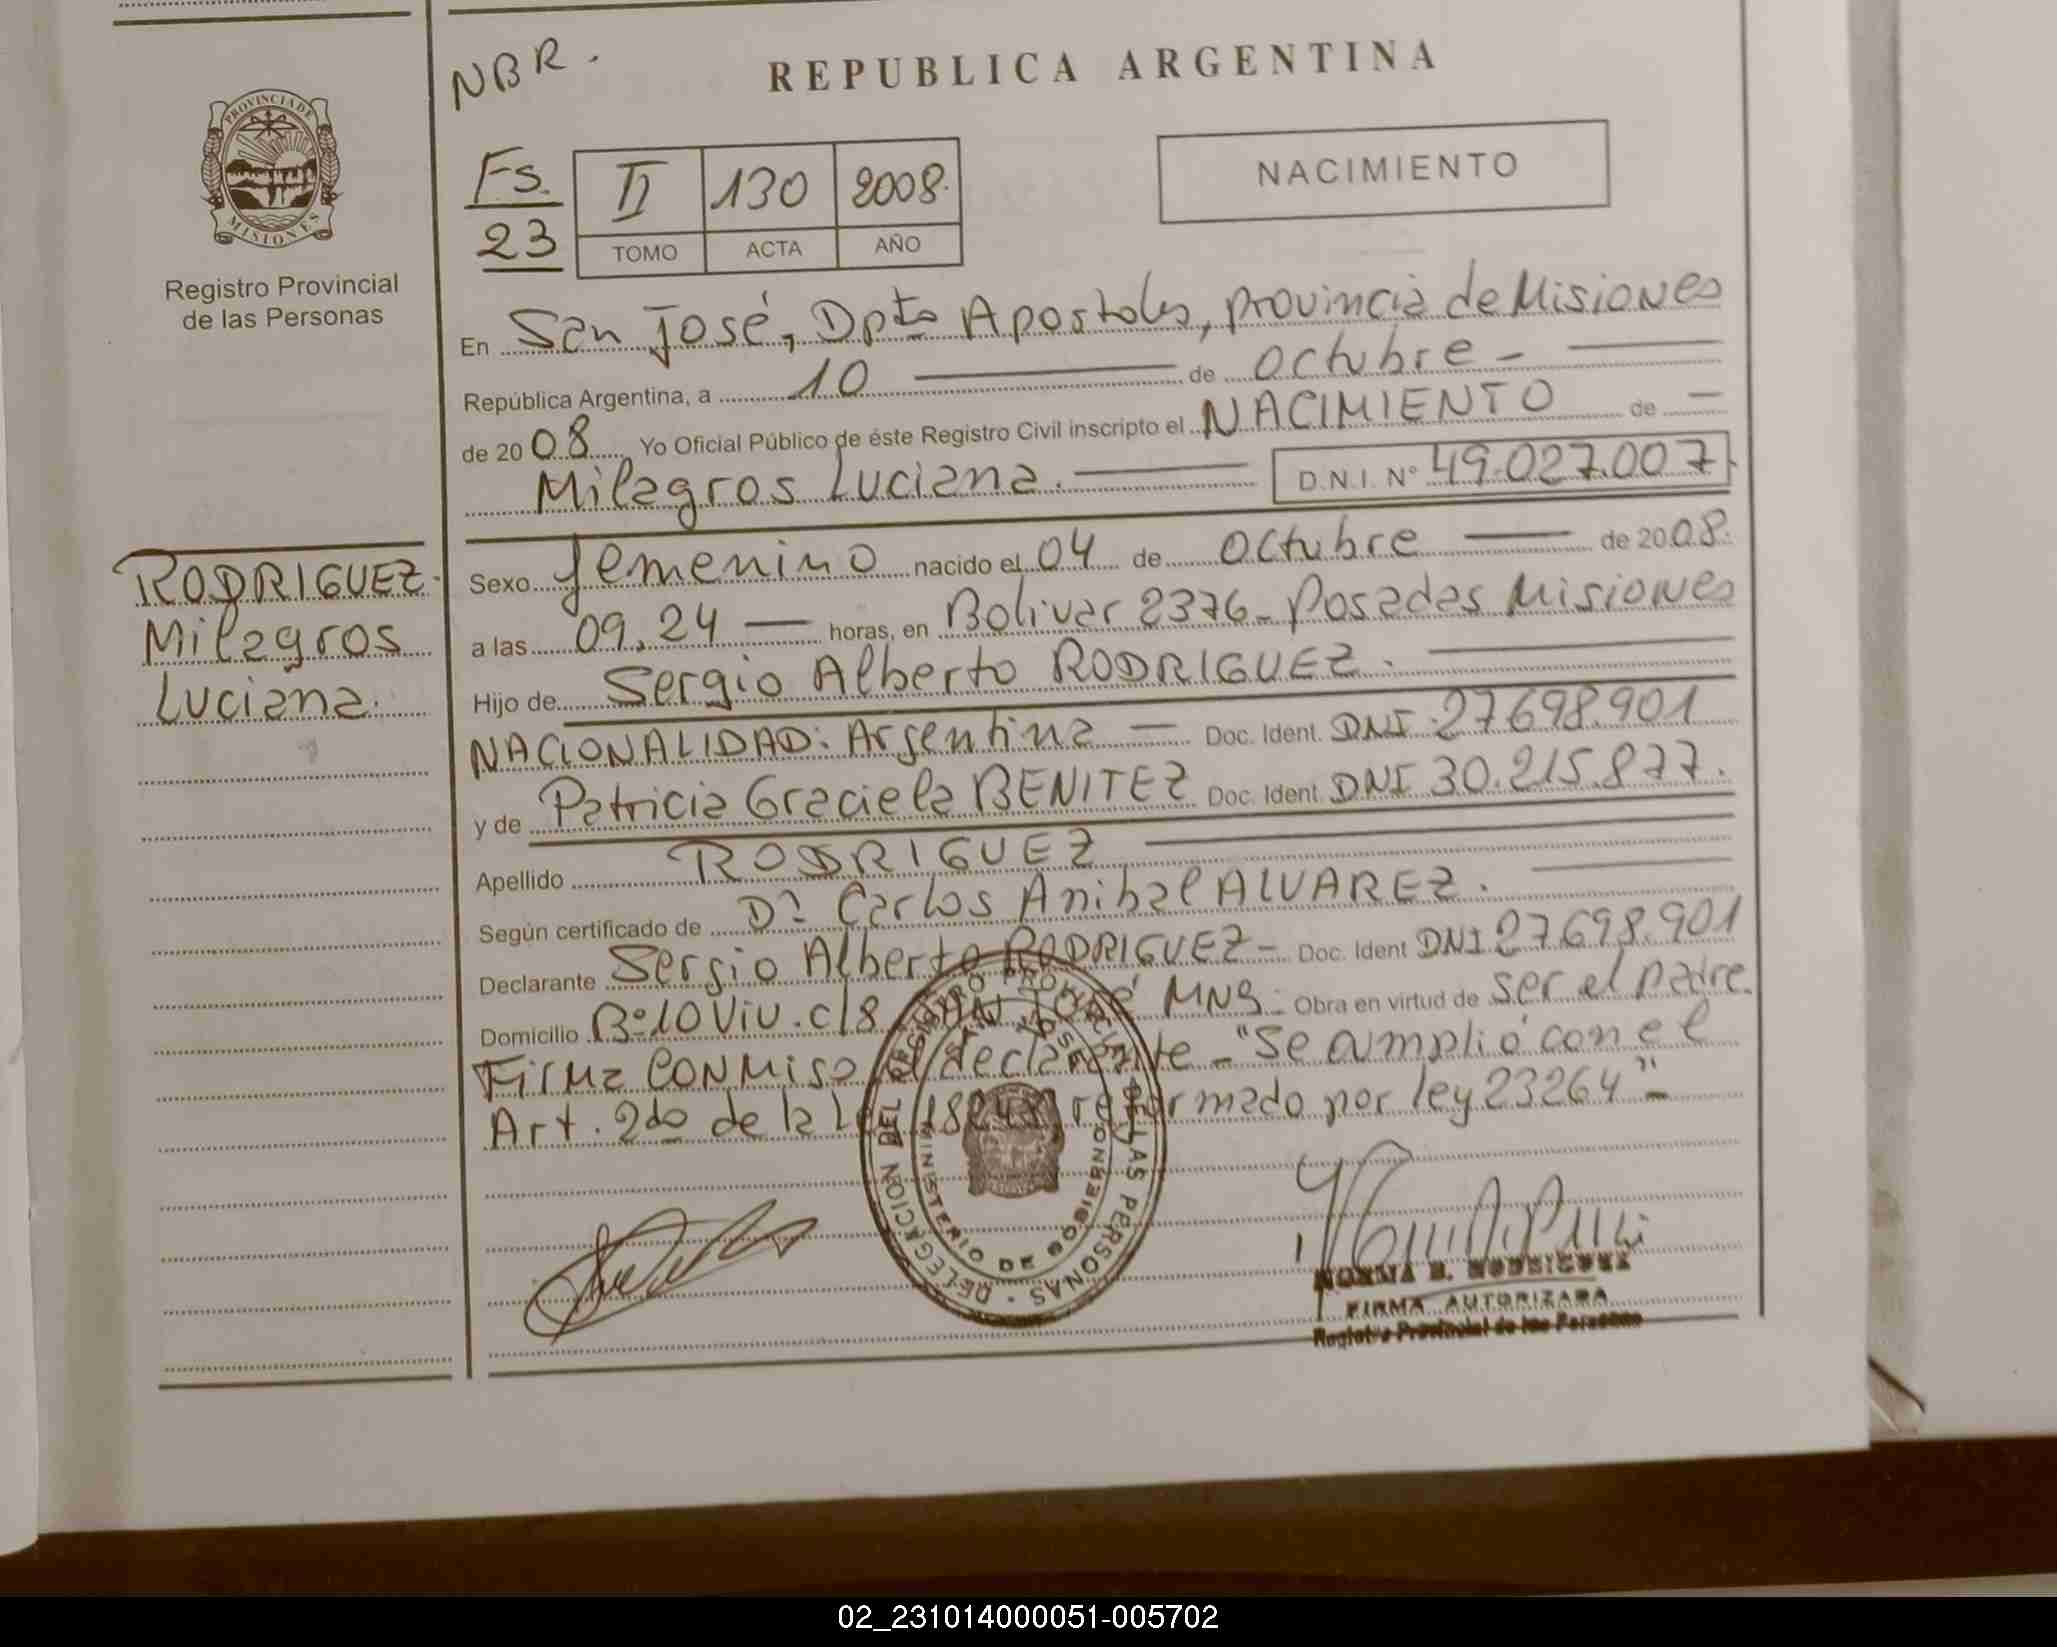 NBR.
REPUBLICA ARGENTINA
PROVINCIA DE
MISIONES
Registro Provincial
de las Personas
Fs.
23
II 130 2008.
TOMO ACTA AÑO
NACIMIENTO
En San José, Dpto Apostoles, provincia de Misiones
República Argentina, a 10 de octubre -
de 2008 Yo Oficial Público de éste Registro Civil inscripto el NACIMIENTO de
Milagros Luciana. D.N.I. Nº 49.027.007
RODRIGUEZ.
Milagros
Luciana.
Sexo femenino nacido el 04 de octubre de 2008.
a las 09,24 horas, en Bolivar 2376 - Posadas Misiones
Hijo de Sergio Alberto RODRIGUEZ.
NACIONALIDAD: Argentina - Doc. Ident. DNI 27.698.901
y de Patricia Graciela BENITEZ Doc. Ident. DNI 30.215.877.
Apellido RODRIGUEZ
Según certificado de Dr. Carlos Anibal ALVAREZ.
Declarante Sergio Alberto RODRIGUEZ - Doc. Ident DNI 27.698.901
Domicilio Bº 10 Viv. c/8 SAN José MNS. Obra en virtud de ser el padre.
Firma CONMIGO el declarante - "Se amplió con el
Art. 2do de la Ley 18248 reformado por ley 23264" -
DELEGACION DEL REGISTRO PROVINCIAL DE LAS PERSONAS
SAN JOSE
MINISTERIO DE GOBIERNO
NORMA B. RODRIGUEZ
FIRMA AUTORIZADA
Registro Provincial de las Personas
02_231014000051-005702